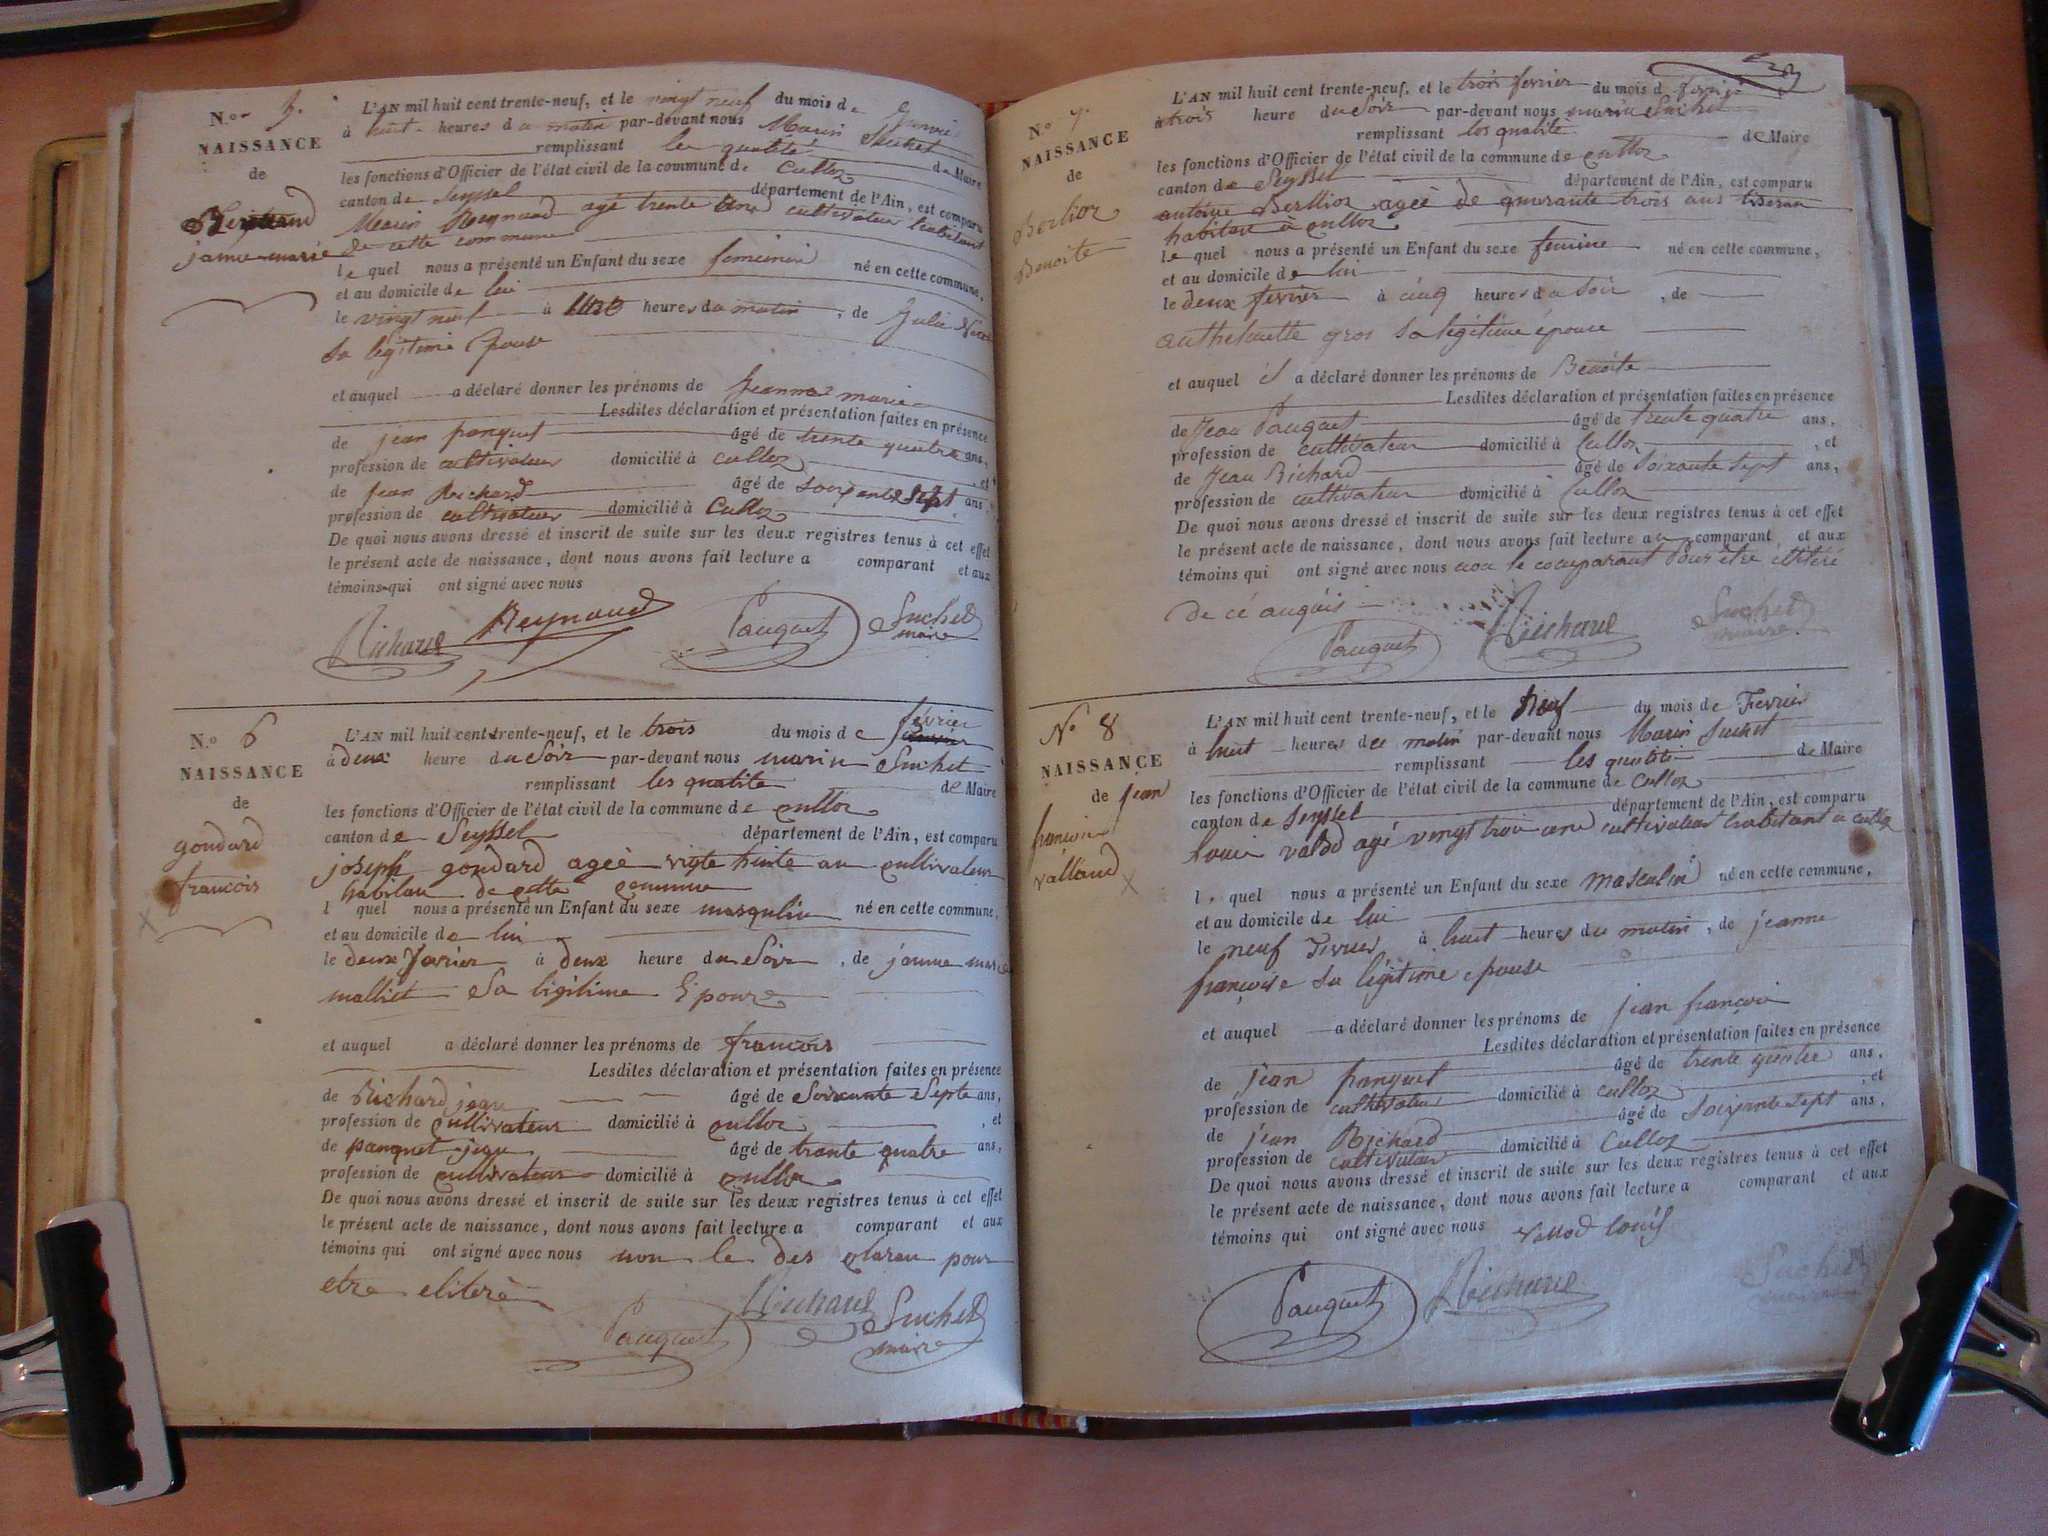 N.o 5.
NAISSANCE
de
jeanne-marie
L'AN mil huit cent trente-neuf, et le vingt neuf du mois de
à huit heures du matin par-devant nous Marin Suchet
remplissant les qualité de Maire
les fonctions d'Officier de l'état civil de la commune de Culloz
canton de Seyssel département de l'Ain, est comparu
Marin Reynaud agé trente cultivateur habitant
de cette commune
le quel nous a présenté un Enfant du sexe feminin né en cette commune,
et au domicile de lui
le vingt neuf à heures du matin, de Julie
sa legitime Epouse
et auquel a déclaré donner les prénoms de Jeanne marie
Lesdites déclaration et présentation faites en présence
de jean panquet âgé de trente quatre ans,
profession de cultivateur domicilié à culloz, et
de jean Richard âgé de soixante sept ans,
profession de cultivateur domicilié à Culloz
De quoi nous avons dressé et inscrit de suite sur les deux registres tenus à cet effet
le présent acte de naissance, dont nous avons fait lecture a comparant et aux
témoins qui ont signé avec nous
Richard Reynaud Pauquet Suchet
maire
N.o 6
NAISSANCE
de
gondard
francois
L'AN mil huit cent trente-neuf, et le trois du mois de février
à deux heure du Soir par-devant nous marin Suchet
remplissant les qualité de Maire
les fonctions d'Officier de l'état civil de la commune de culloz
canton de Seyssel département de l'Ain, est comparu
joseph gondard ageé vigte huite an cultivateur
habitan de cette comune
l quel nous a présenté un Enfant du sexe masqulin né en cette commune,
et au domicile de lui
le deux à deux heure du Soir, de jeanne marie
malliet Sa ligitime Epouse
et auquel a déclaré donner les prénoms de francois
Lesdites déclaration et présentation faites en présence
de Richard jean âgé de Soixante Septe ans,
profession de cultivateur domicilié à culloz, et
de panquet jean âgé de trante quatre ans,
profession de cultivateur domicilié à culloz
De quoi nous avons dressé et inscrit de suite sur les deux registres tenus à cet effet
le présent acte de naissance, dont nous avons fait lecture a comparant et aux
témoins qui ont signé avec nous non le des claran pour
etre eliteré
Pauquet Richard Suchet
maire
N.o 7.
NAISSANCE
de
Berlioz
Benoite
L'AN mil huit cent trente-neuf, et le trois fevrier du mois d
à trois heure du Soir par-devant nous marin Suchet
remplissant les qualité de Maire
les fonctions d'Officier de l'état civil de la commune de culloz
canton de Seyssel département de l'Ain, est comparu
antoine Berllioz ageé de quarante trois ans tiseran
habitan à culloz
le quel nous a présenté un Enfant du sexe feminine né en cette commune,
et au domicile de lui
le deux fevrier à cinq heures du Soir, de
anthelmette gros Sa légitime épouce
et auquel il a déclaré donner les prénoms de Benoite
Lesdites déclaration et présentation faites en présence
de Jean Pauquet âgé de trente quatre ans,
profession de cultivateur domicilié à Culloz, et
de Jean Richard âgé de Soixante Sept ans,
profession de cultivateur domicilié à Culloz
De quoi nous avons dressé et inscrit de suite sur les deux registres tenus à cet effet
le présent acte de naissance, dont nous avons fait lecture au comparant et aux
témoins qui ont signé avec nous non le comparant Pour être illitéré
de cé
Pauquet Richard Suchet
maire
N.o 8
NAISSANCE
de jean
francois
valland
L'AN mil huit cent trente-neuf, et le Neuf du mois de Fevrier
à huit heures du matin par-devant nous Marin Suchet
remplissant les qualité de Maire
les fonctions d'Officier de l'état civil de la commune de Culloz
canton de Seyssel département de l'Ain, est comparu
Louis valod agé vingt trois ans cultivateur habitant a culloz
l quel nous a présenté un Enfant du sexe masculin né en cette commune,
et au domicile de lui
le neuf Fevrier à huit heures du matin, de jeanne
françoise sa légitime epouse
et auquel a déclaré donner les prénoms de jean françois
Lesdites déclaration et présentation faites en présence
de jean panquet âgé de trente quatre ans,
profession de cultivateur domicilié à culloz, et
de jean Richard âgé de soixante sept ans,
profession de cultivateur domicilié à Culloz
De quoi nous avons dressé et inscrit de suite sur les deux registres tenus à cet effet
le présent acte de naissance, dont nous avons fait lecture a comparant et aux
témoins qui ont signé avec nous Vallod Louis
Pauquet Richard Suchet